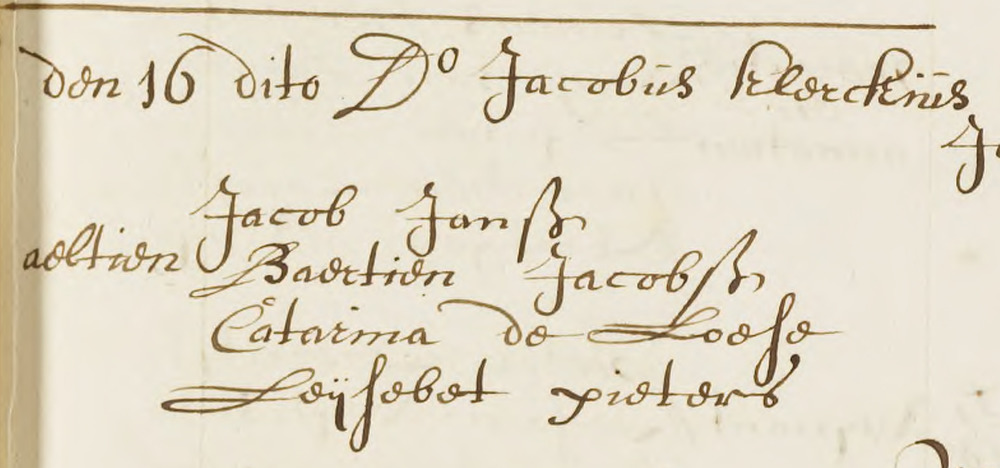 den 16 dito Do Jacobus klerckius
Jacob Janß
aeltien Baertien Jacobß
Catarina de Loese
Leijsebet pieters